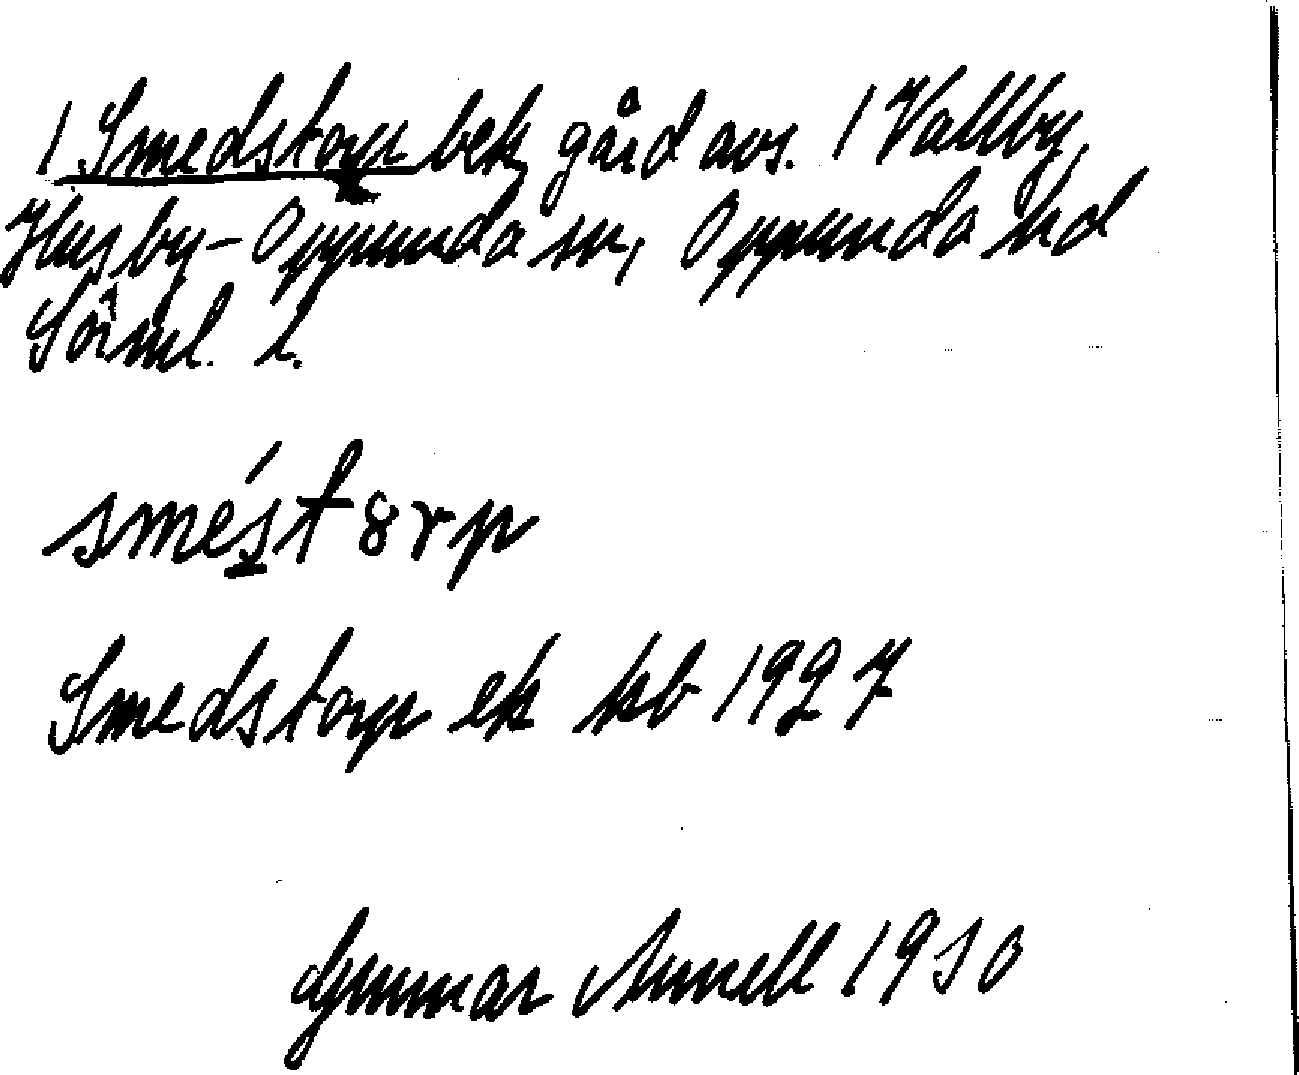 1 Smedstorp bek gård avs. 1 Vallby,
Husby-Oppunda sn, Oppunda hd
Söml. l.
smést8rp
Smedstorp ek kb 1927
Gunnar Arnell 1930